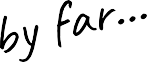 by far...